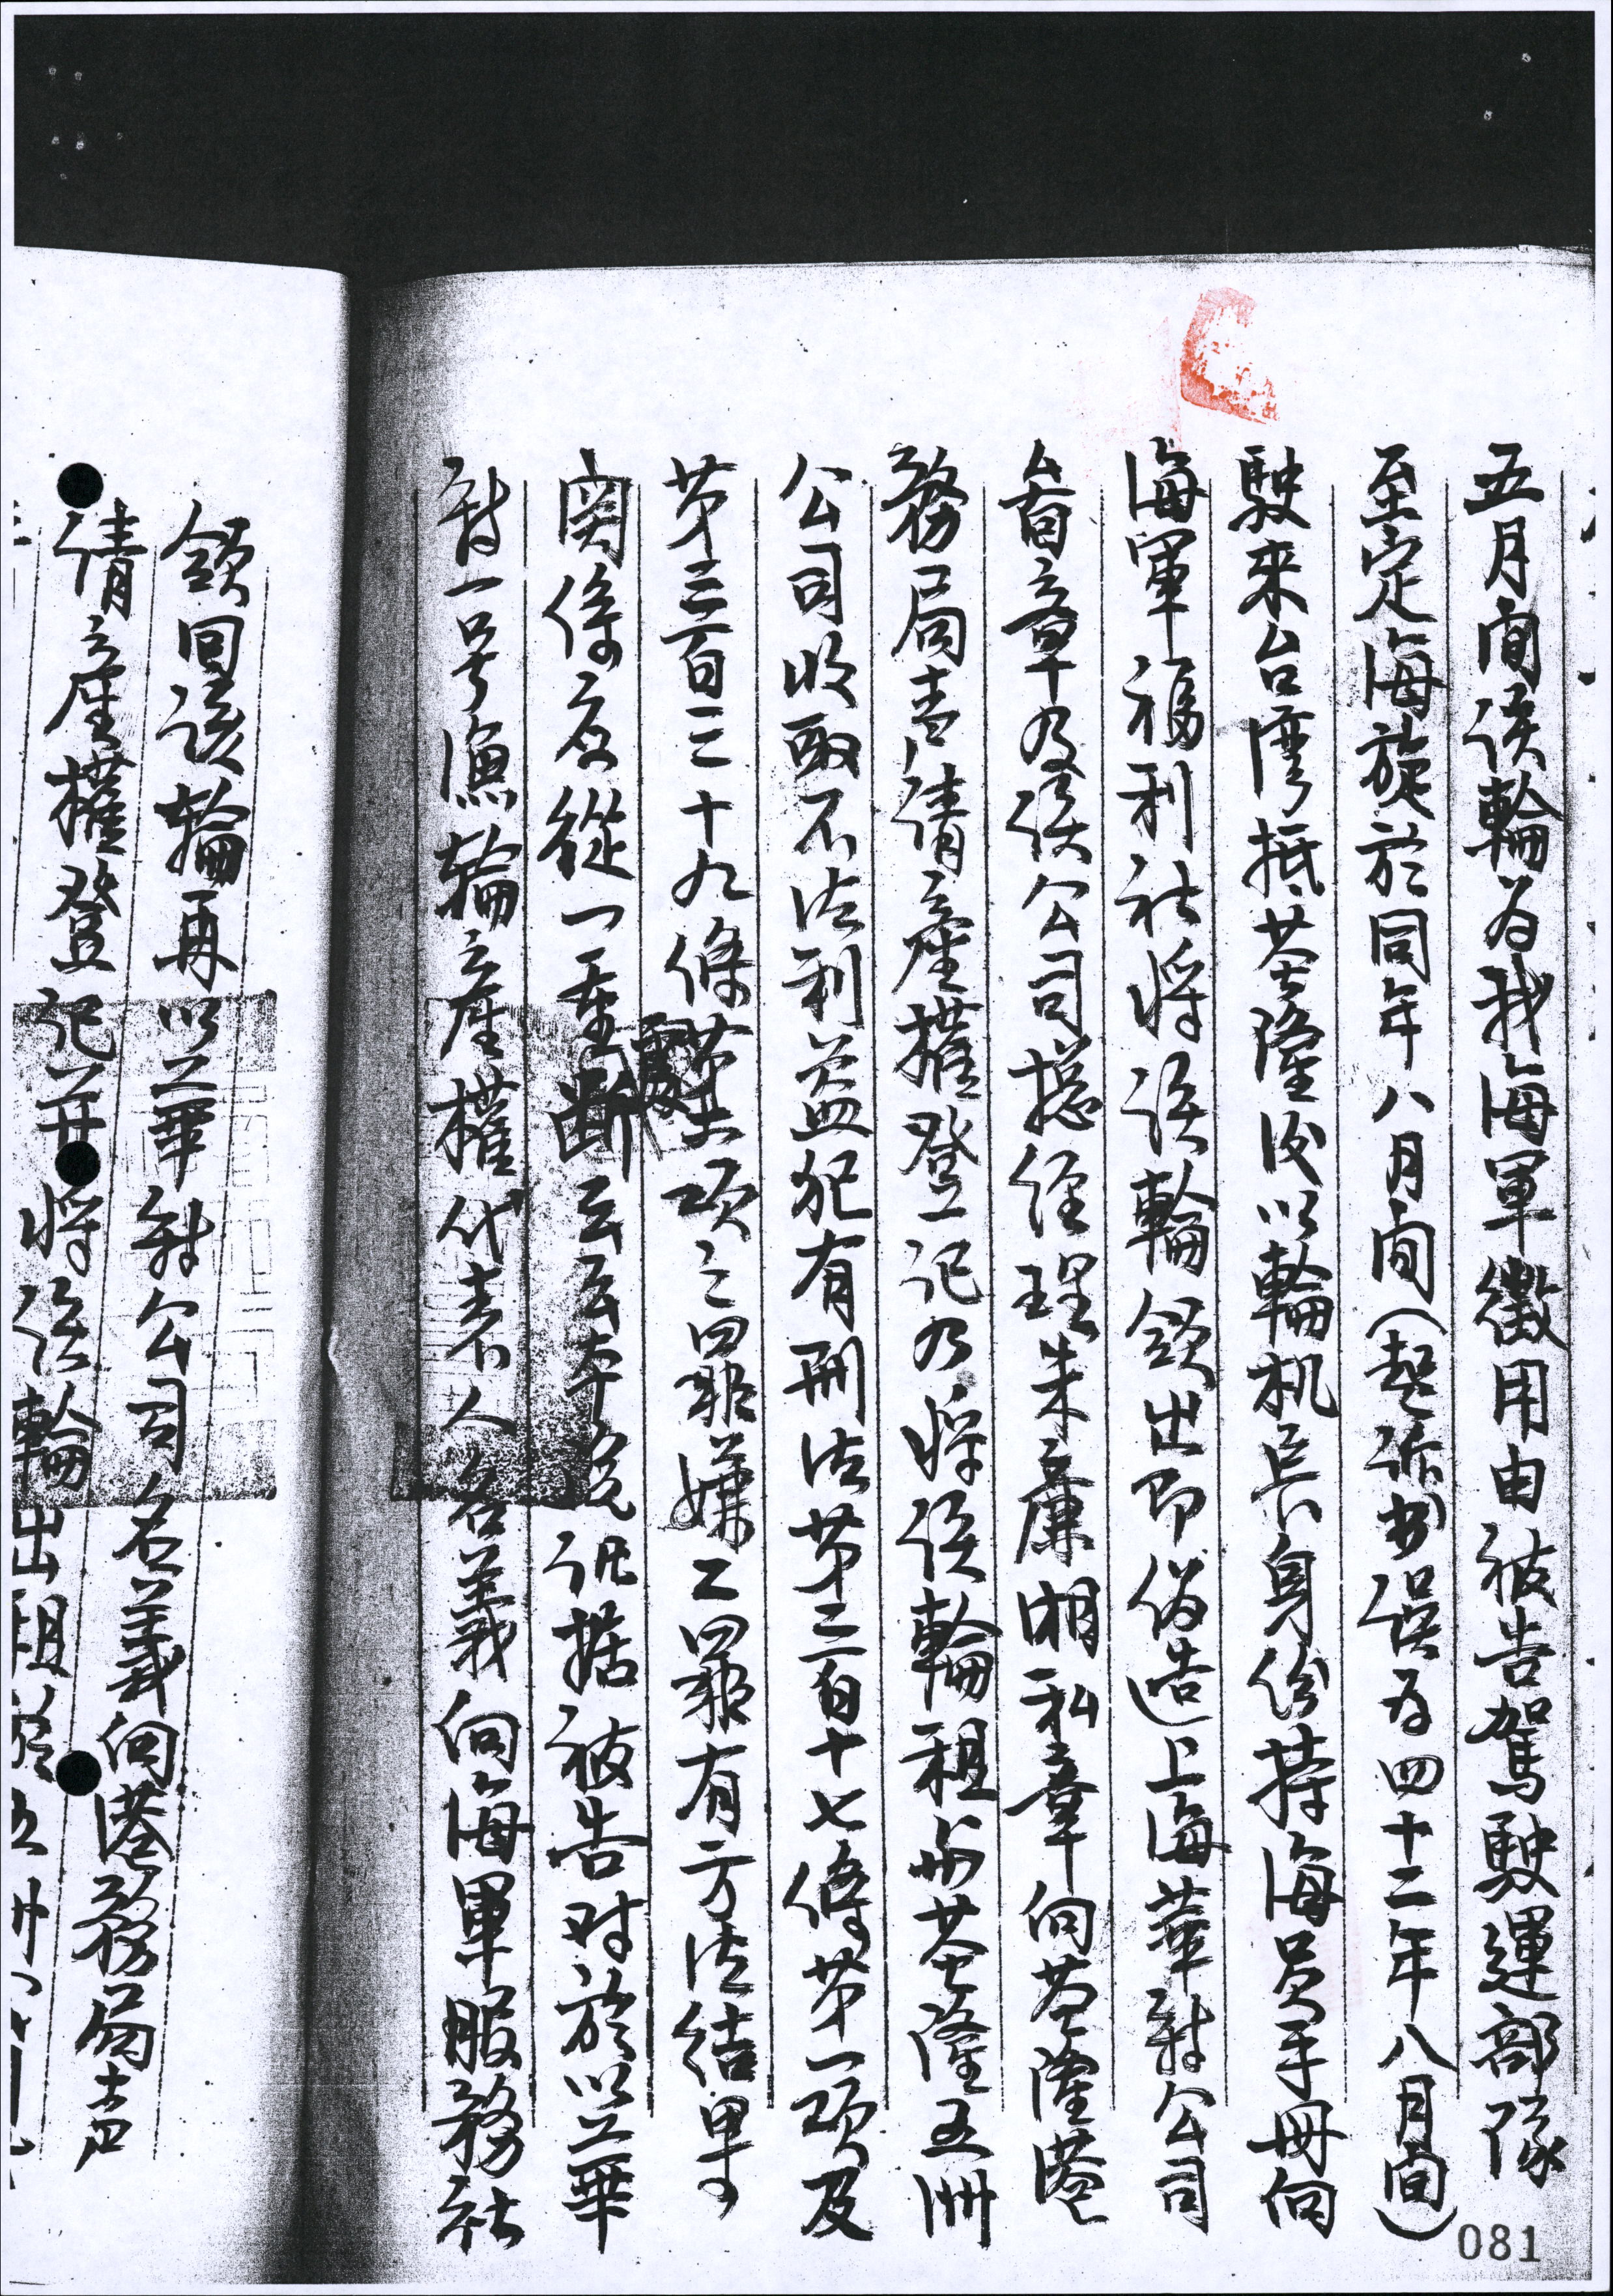 五月间該輪为我海軍徵用由被告駕駛運部隊
至定海旋於同年八月间(起訴书误为四十二年八月间)
駛來台湾抵基隆後以輪机兵身份持海员手冊向
海軍福利社將該輪領出即偽造上海華新公司
酋章及該公司总經理朱廉湘私章向基隆港
務局声請產權登記乃將該輪租与基隆五洲
公司收取不法利益犯有刑法第二百十七條第一項及
第三百三十九條第一項之罪嫌二罪有方法结果
関係应從一重處断云云本院讯据被告对於以華
新一号漁輪產權代表人名義向海軍服務社
領回該輪再以華新公司名義向港務局声
請產權登記并將該輪出租於五洲
081